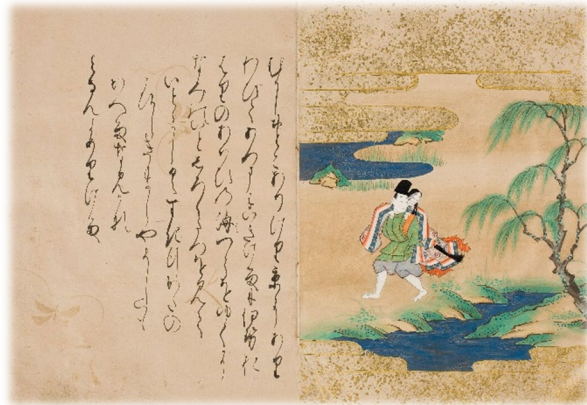 むかしおとこありけり京にあり
わひてあつまにいきけるに伊勢お
はりのあはひの海つらをゆくに
なみのいとしろくたつをみて
いとゝしくすきゆくかたの
こひしきにうらやましくも
かへるなみかな
となんよめりける